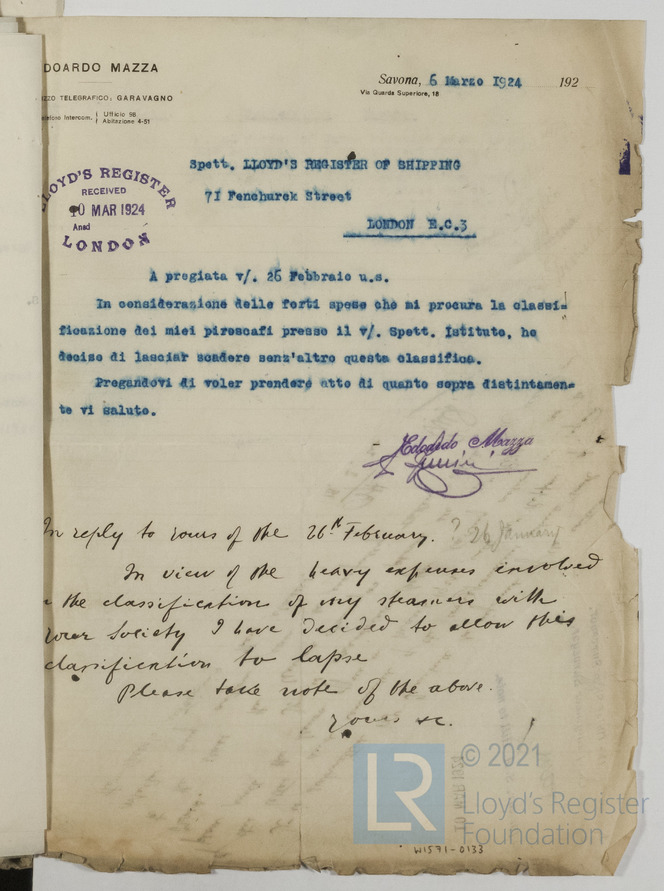 DOARDO MAZZA
IZZO TELEGRAFICO: GARAVAGNO
Intercom. Ufficio 98
Abitazione 4-51
Savona, 6 Marzo 1924 192
Via Guarda Superiore, 18
LLOYD'S REGISTER
RECEIVED
10 MAR 1924
Ansd
LONDON
Spett. LLOYD'S REGISTER OF SHIPPING
71 Fenchurck Street
LONDON E.C.3
A pregiata v/. 26 Febbraio u.s.
In considerazione delle forti spese che mi procura la classi=
ficazione dei miei piroscafi presso il v/. Spett. Istituto, ho
deciso di lasciar scadere senz'altro questa classifica.
Pregandovi di voler prendere atto di quanto sopra distintamen=
te vi saluto.
Edoardo Mazza
In reply to yours of the 26th February. ? 26 January
In view of the heavy expenses involved
the classification of my steamers with
your Society I have decided to allow this
classification to lapse
Please take note of the above.
Yours &c.
10 MAR 1924
LR © 2021
Lloyd's Register
Foundation
W1571-0133